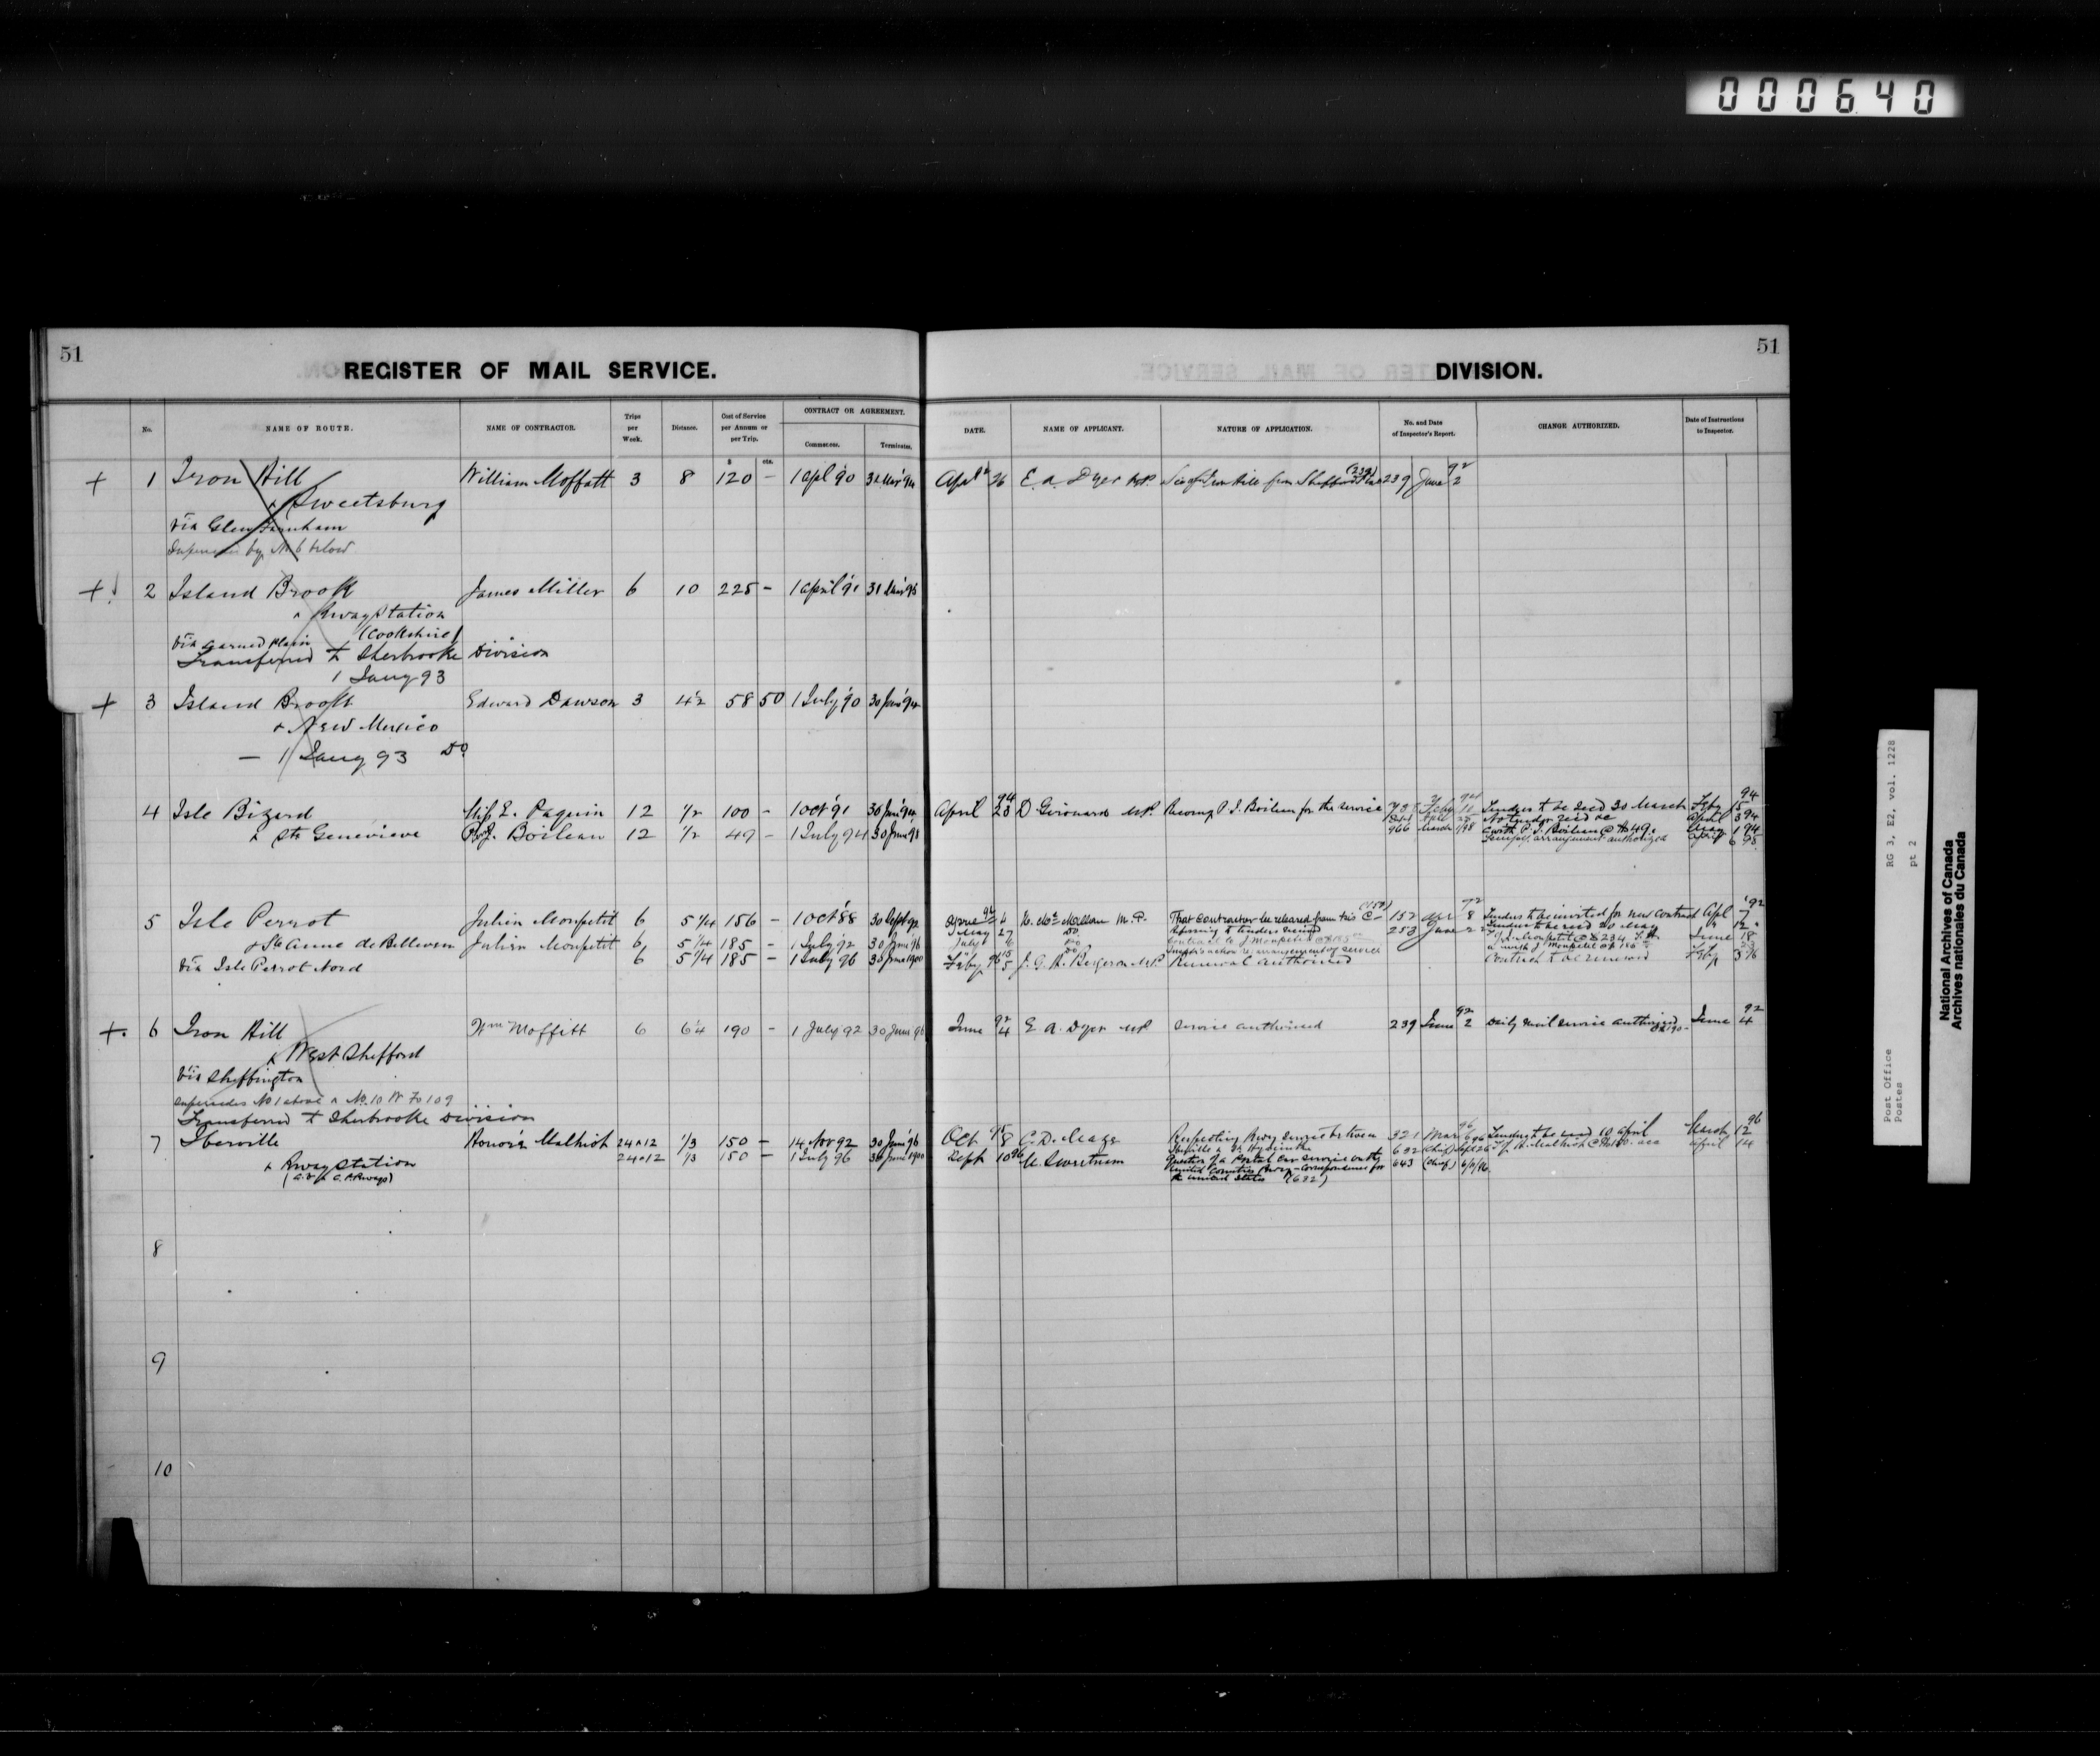 000640
51
REGISTER OF MAIL SERVICE.
No.
NAME OF ROUTE.
NAME OF CONTRACTOR.
Trips per Week.
Distance.
Cost of Service per Annum or per Trip.
$ cts.
CONTRACT OR AGREEMENT.
Commences.
Terminates.
+ 1 Iron Hill William Moffatt 3 8 120 - 1 Apl '90 31 Mar '94
& Sweetsburg
via Glen Farnham
by No 6 below
+ 2 Island Brook James Miller 6 10 225 - 1 April '91 31 Mar '95
& Rway Station
(Cookshire)
via
Transferred to Sherbrooke Division
1 Jany 93
+ 3 Island Brook Edward Dawson 3 4½ 58 50 1 July '90 30 June '94
& New Mexico
— 1 Jany 93 Do
4 Isle Bizard Miss E. Paquin 12 ½ 100 - 1 Oct '91 30 June '94
& Ste Genevieve P. J. Boileau 12 ½ 49 - 1 July '94 30 June 98
5 Isle Perrot Julien Monpetit 6 5¼ 156 - 1 Oct '88 30 Sept 92
& Ste Anne de Bellevue Julien Monpetit 6 5¼ 185 - 1 July '92 30 June '96
via Isle Perrot Nord 6 5¼ 185 - 1 July 96 30 June 1900
+ 6 Iron Hill Wm Moffitt 6 6¼ 190 - 1 July 92 30 June 96
& West Shefford
via Sheffington
supersedes No 1 above & No. 10 W Fo 109
Transferred to Sherbrooke Division
7 Iberville Honoré Malhiot 24 & 12 ⅓ 150 - 14 Nov 92 30 June '96
& Rway Station 24 & 12 ⅓ 150 - 1 July 96 30 June 1900
8
9
10
51
DIVISION.
DATE.
NAME OF APPLICANT.
NATURE OF APPLICATION.
No. and Date of Inspector's Report.
CHANGE AUTHORIZED.
Date of Instructions to Inspector.
April 26 E. A. Dyer MP 239 June 2
92
April 94 23 D Girouard MP. Recomg P. J. Boileau for the service Tenders to be recd 30 March Feby 15 94
966 March
Tempy. arrangement authorized April 6 95
April 92 4 That contractor be released from his C— 152 Apr 8 92 Tenders to be invited for new contract Apl 7 92
May 27 Do Referring to tenders received 253 June 2 Tenders to be recd 20 May
July
Feby 96 5 J. G. H. Bergeron MP. Renewal authorised Contract to be renewed Feby 3 96
June 92 4 E. A. Dyer MP Service authorised 239 June 92 2 Daily mail service authorized June 92 4
Oct 95 8 Respecting Rway service between 321 Mar 96 Tenders to be recd 10 April March 96 12
April 14
Sept 10 96 Question of a Postal car service on the 643 (Chief)
United Counties Rway - correspondence for
the United States (632)
Post Office
Postes
RG 3, E2, vol. 1228
pt 2
National Archives of Canada
Archives nationales du Canada